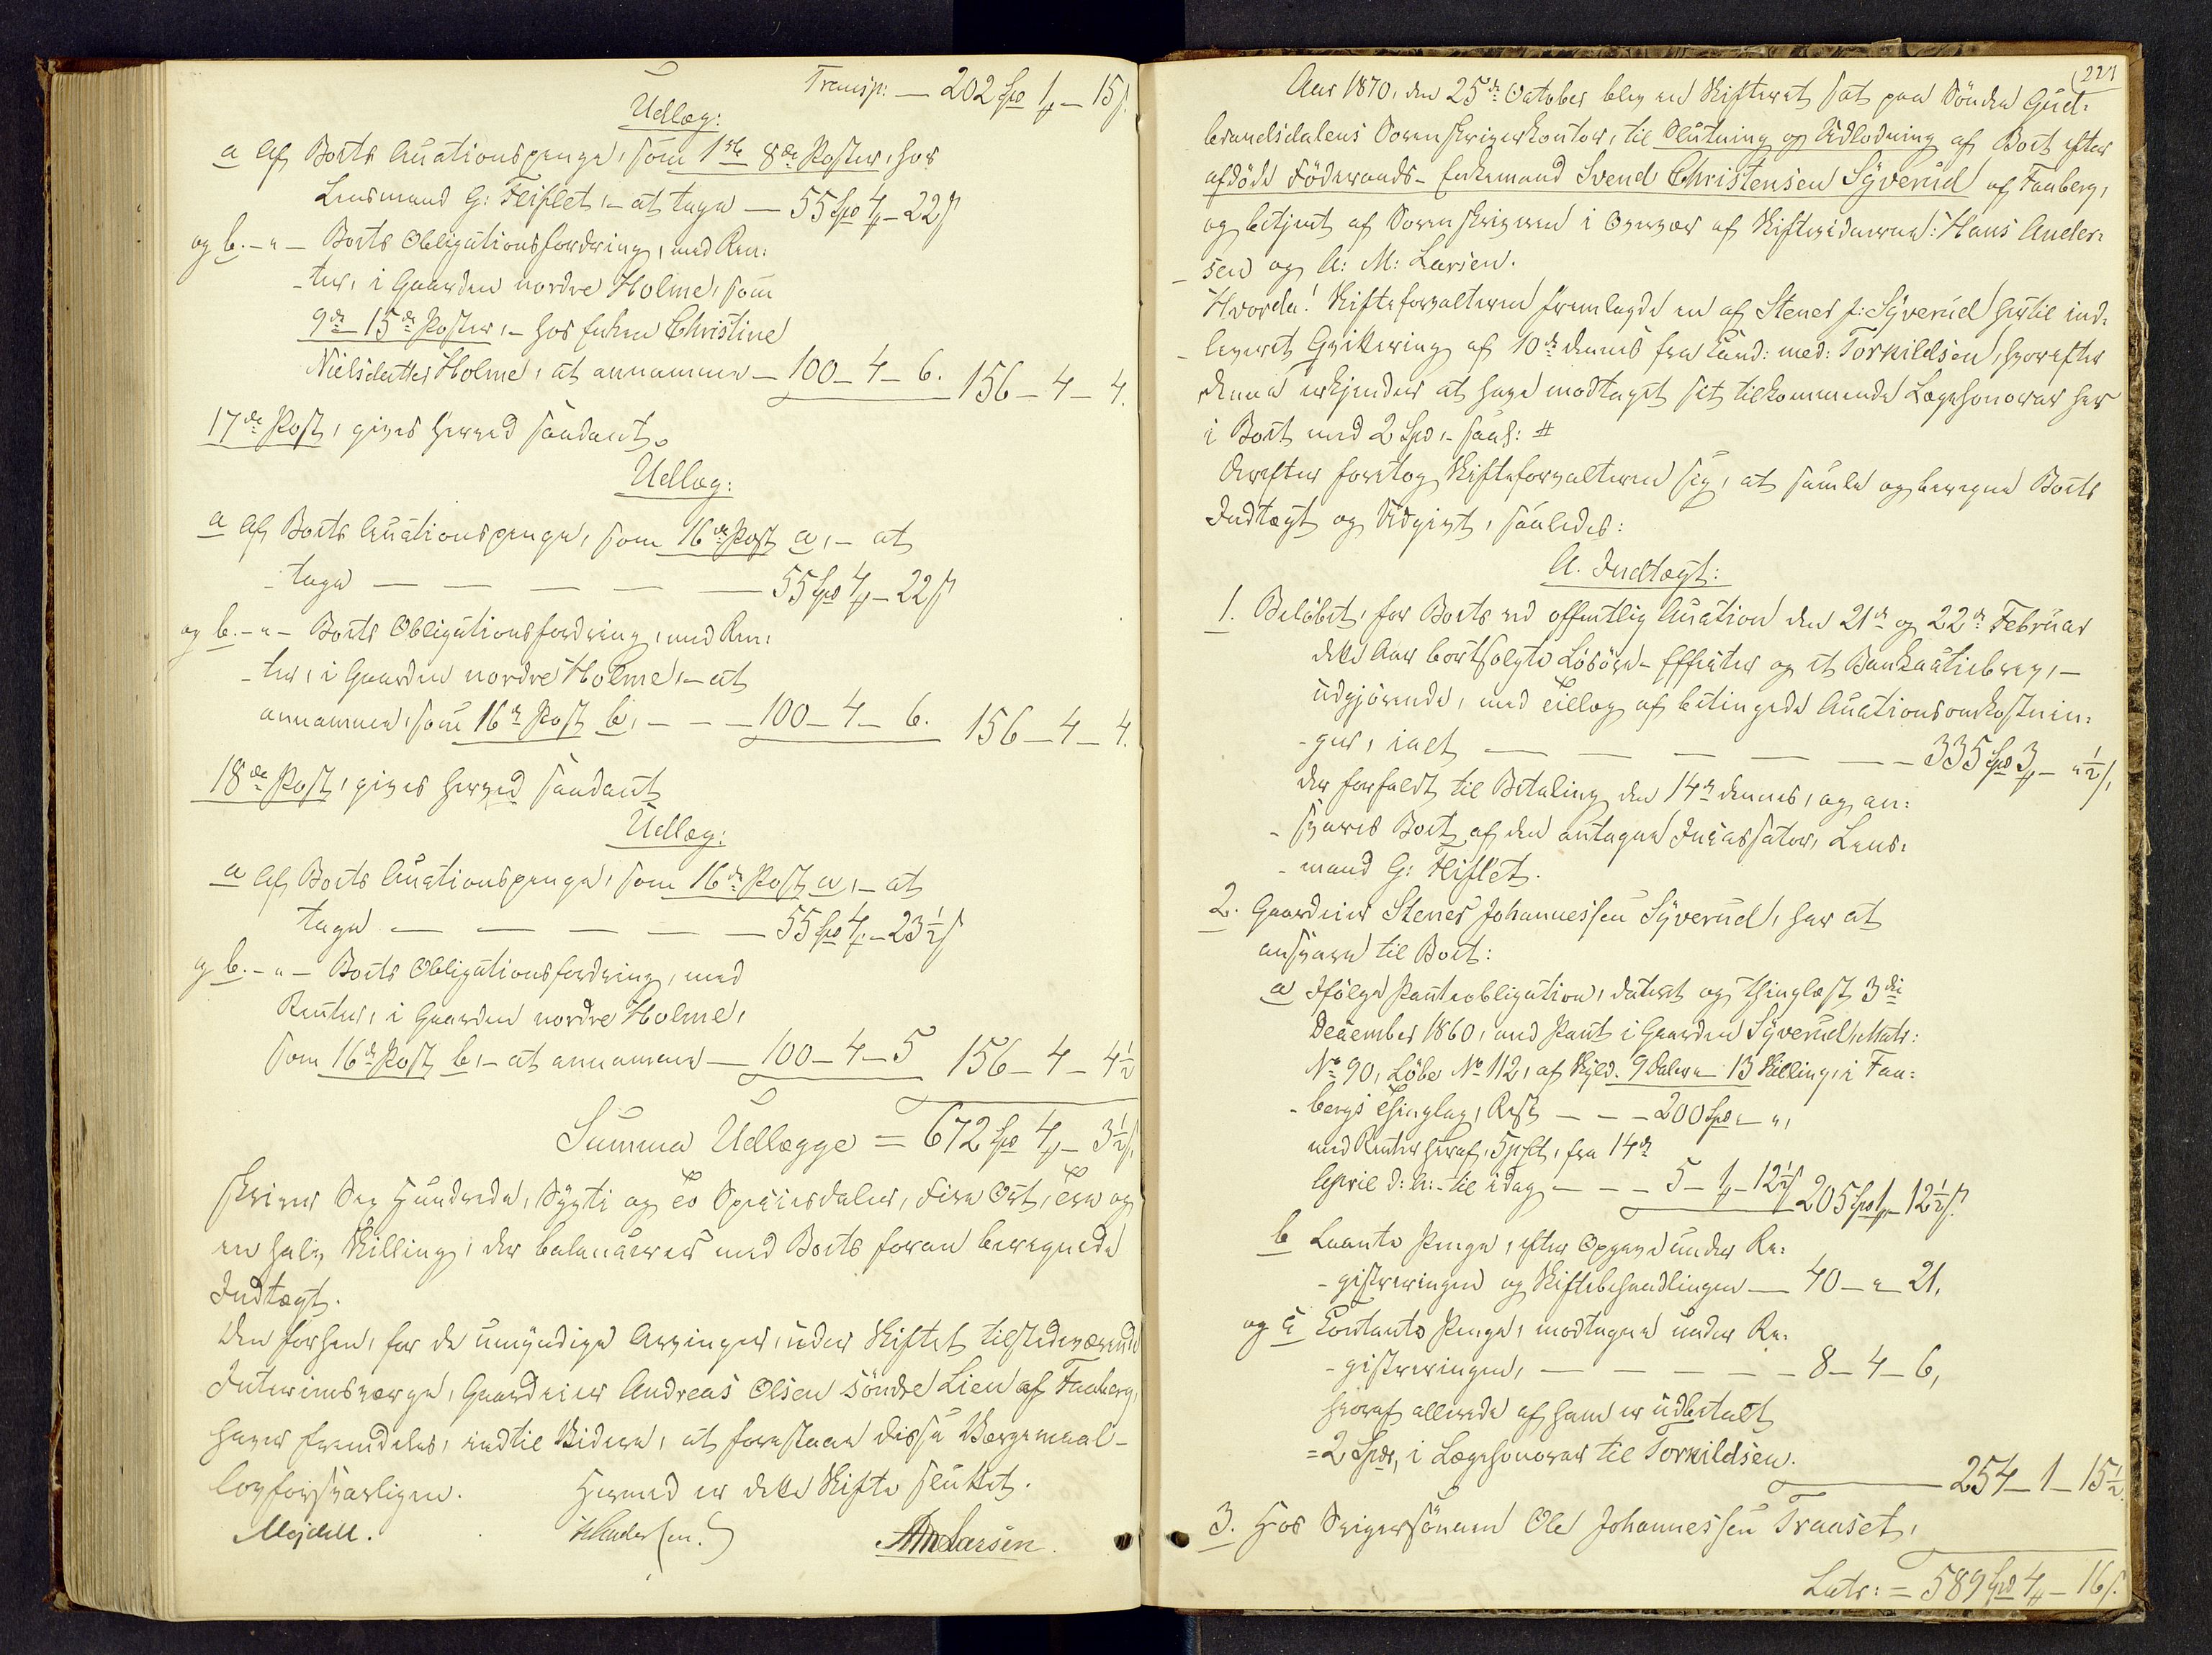 Transp: — 202 Spd 1 ort — 15 s.
Udlæg:
a Af Boets Auctionspenge, som 1ste 8de Poster, hos
Lensmand G: Fliflet, – at tage — 55 Spd 4 — 22 s
og b. – " – Boets Obligationsfordring, med Ren:
-ter, i Gaarden nordre Holme, som
9de 15de Poster, – hos Enken Christine
Nielsdatter Holme, at annamme — 100 – 4 – 6. 156 – 4 – 4.
17de Post, gives herved saadant
Udlæg:
a Af Boets Auctionspenge, som 16de Post a, – at
-tage — — — — — 55 Spd 4 — 22 s
og b. – " – Boets Obligationsfordring, med Ren:
-ter, i Gaarden nordre Holme, – at
annamme, som 16de Post b, – – – 100 – 4 – 6. 156 – 4 – 4.
18de Post, gives herved saadant
Udlæg:
a Af Boets Auctionspenge, som 16de Post a, – at
tage — — — — — 55 Spd 4 – 23 1/2 s
og b. – " – Boets Obligationsfordring, med
Renter, i Gaarden nordre Holme,
som 16de Post b, – at annamme — 100 – 4 – 5 156 – 4 – 4 1/2
Summa Udlægge = 672 Spd 4 – 3 1/2 s.
skriver Sex Hundrede, Sytti og to Speciesdaler, fire Ort, tre og
en halv Skilling, der balancerer med Boets foran beregnede
Indtægt.
Den forhen, for de umyndige Arvinger, under Skiftet tilstedeværende
Interimsværge, Gaardeier Andreas Olsen søndre Lien af Faaberg,
haver fremdeles, indtil Videre, at forestaae disse Værgemaal –
lovforsvarligen. Hermed er dette Skifte sluttet.
Mejdell. H Andersen. AMLarsen.
221
Aar 1870, den 25de October blev en Skifteret sat paa Søndre Gud:
brandsdalens Sorenskriverkontor, til Slutning og Udlodning af Boet efter
afdøde Føderaads- Enkemand Svend Christensen Syverud af Faaberg,
og betjent af Sorenskriveren i Overvær af Skiftevidnerne: Hans Ander:
- sen og A: M: Larsen.
Hvorda! Skifteforvalteren fremlagde en af Stener J: Syverud hertil ind:
- leveret Qvittering af 10de dennes fra Cand: med: Torkildsen, hvorefter
denne erkjender at have modtaget sit tilkommende Lægehonorar her
i Boet med 2 Spd, – saal: #
Derefter foretog Skifteforvalteren sig, at samle og beregne Boets
Indtægt og Udgivt, saaledes:
A. Indtægt:
1. Beløbet, for Boets ved offentlig Auction den 21de og 22de Februar
dette Aar bortsolgte Løsøre- Effecter og et Bankactiebrev, –
udgjørende, med Tillæg af betingede Auctionsomkostnin:
-ger, ialt — — — — — 335 Spd 3 – " 1/2 s,
der forfaldt til Betaling den 14de dennes, og an:
- svares Boet af den antagne Incassator, Lens:
- mand G: Fliflet.
2. Gaardeier Stener Johannessen Syverud, har at
ansvare til Boet:
a Ifølge Panteobligation, dateret og thinglæst 3die
December 1860, med Pant i Gaarden Syverud, Matr:
No 90, Løbe No 112, af Skyld. 9 Daler – 13 Skilling, i Faa:
- bergs Thinglag, Rest – – – 200 Spd – ",
med Renter heraf, 5 pCt, fra 14de
April d: A: – til idag – – – 5 – 1 – 12 1/2 s 205 Spd 1 – 12 1/2 s.
b Laante Penge, efter Opgave under Re:
- gistreringen og Skiftebehandlingen — 40 – " – 21.
og c Contante Penge, modtagne under Re:
- gistreringen, — — — — — 8 – 4 – 6,
hvoraf allerede af ham er udbetalt
= 2 Spdr, i Lægehonorar til Torkildsen.
— 254 – 1 – 15 1/2.
3. Hos Svigersønnen Ole Johannessen Traaset,
Latr: = 589 Spd 4 – 16 s.